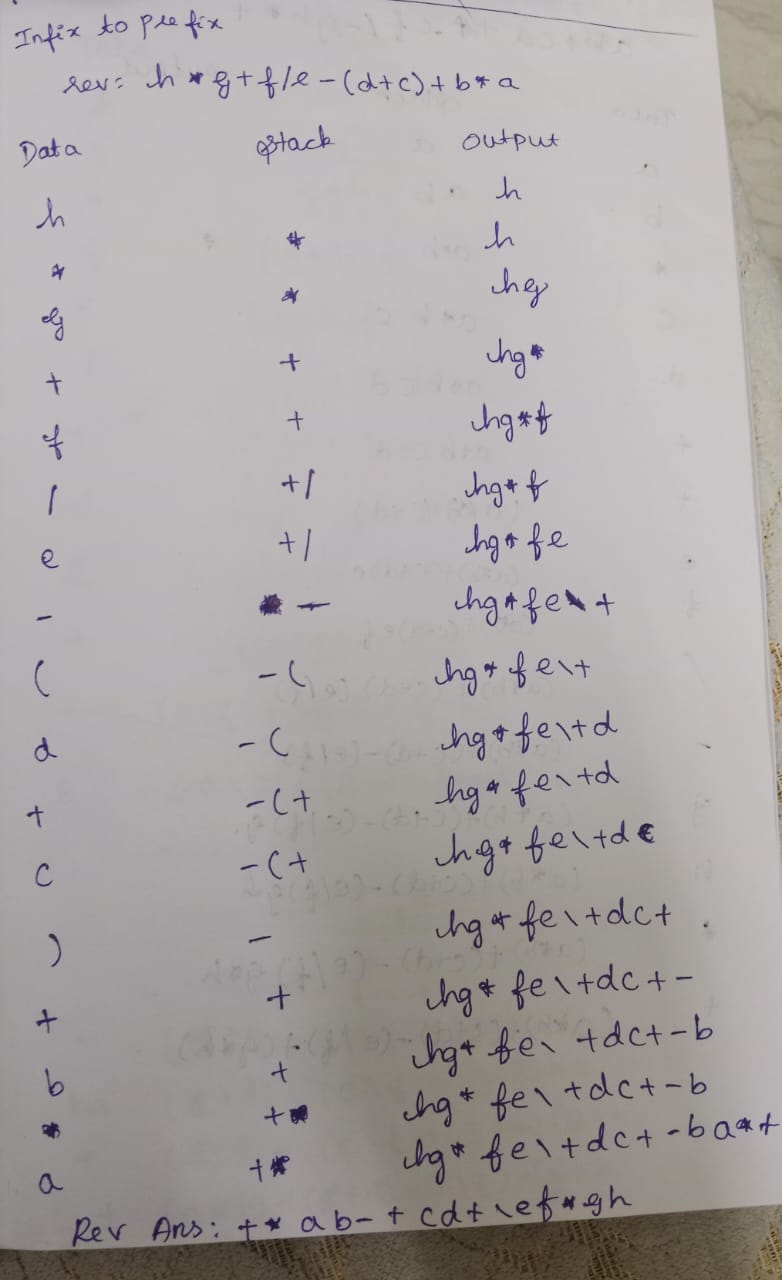 Infix to prefix
rev: h * g + f/e - (d+c) + b * a
Data Stack Output
h h
* * h
g * hg
+ + hg*
f + hg*f
/ +/ hg*f
e +/ hg*fe
- - hg*fe\+
( -( hg*fe\+
d -( hg*fe\+d
+ -(+ hg*fe\+d
c -(+ hg*fe\+dc
) - hg*fe\+dc+
+ + hg*fe\+dc+-
b + hg*fe\+dc+-b
* +* hg*fe\+dc+-b
a +* hg*fe\+dc+-ba*+
Rev Ans: +*ab-+cd+\ef*gh